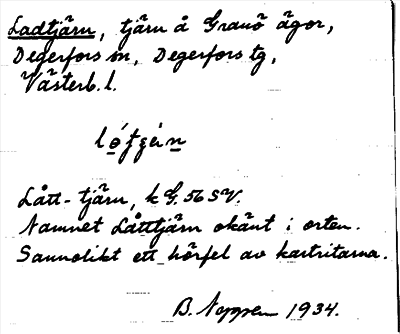 Ladtjärn, tjärn å Granö ägor,
Degerfors sn, Degerfors tg,
Västerb. l.
Lått-tjärn, k G. 56 SV.
Namnet Låttjärn okänt i orten.
Sannolikt ett hörfel av kartritarna.
B. 1934.